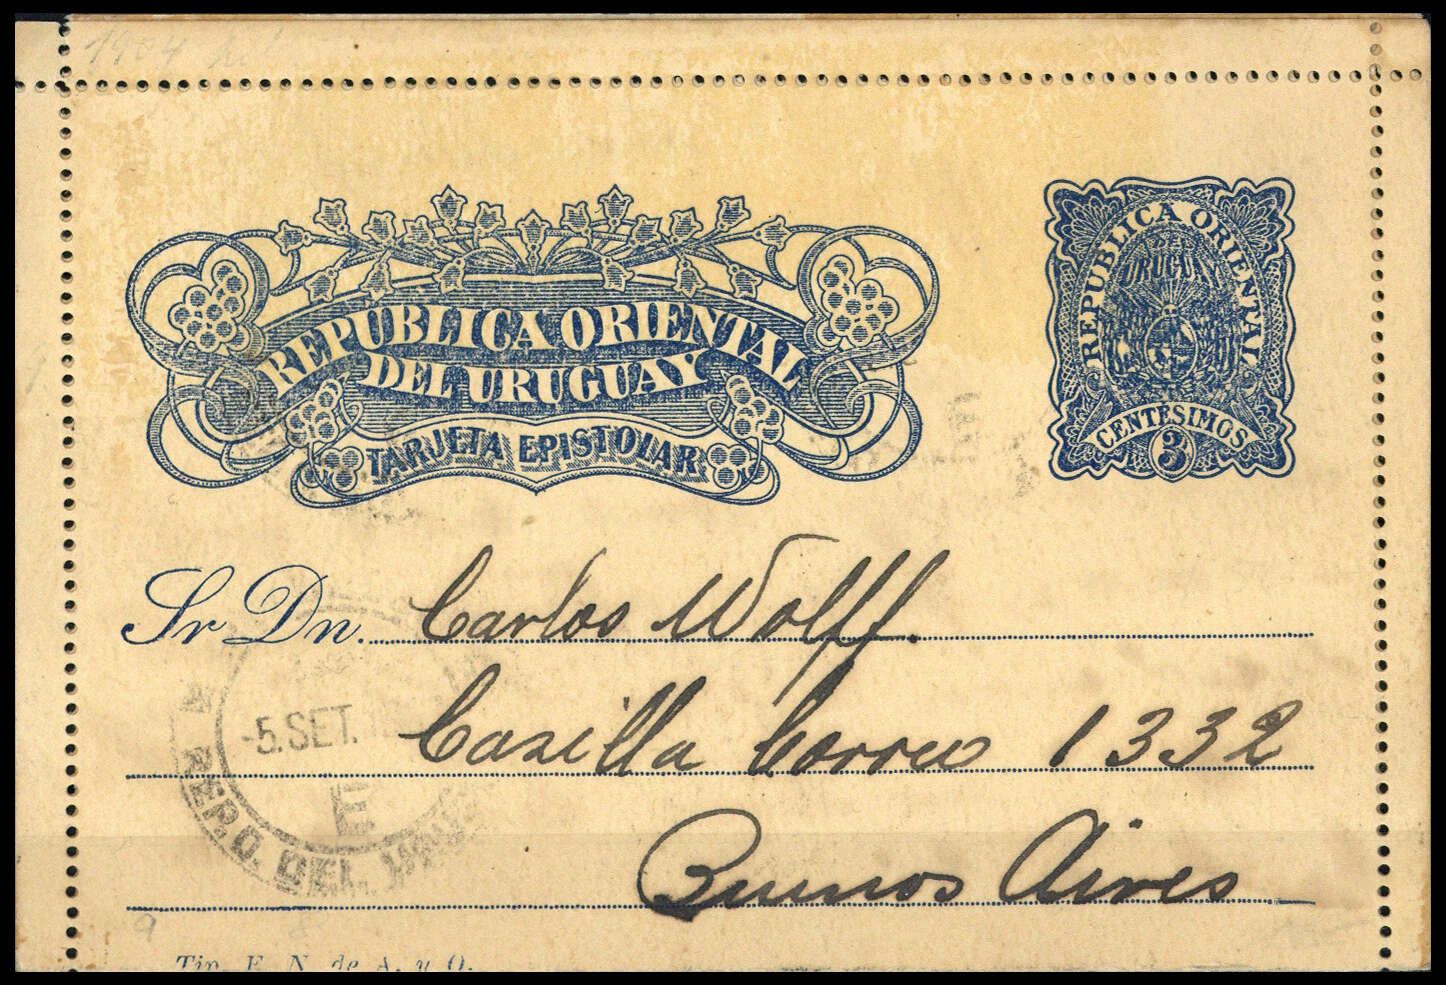 1904
REPUBLICA ORIENTAL
DEL URUGUAY
TARJETA EPISTOLAR
REPUBLICA ORIENTAL
DEL
URUGUAY
CENTESIMOS
3
Sr Dn. Carlos Wolff.
Casilla Correo 1332
Buenos Aires
-5.SET.
E
REP.O. DEL
9
Tip. E. N. de A. y O.